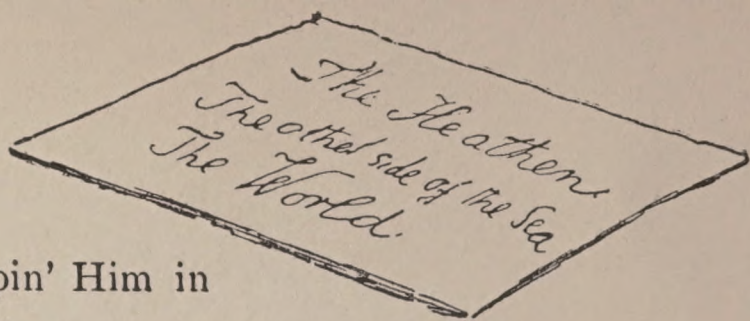 The Heathen
The other side of the Sea
The World.
pin' Him in